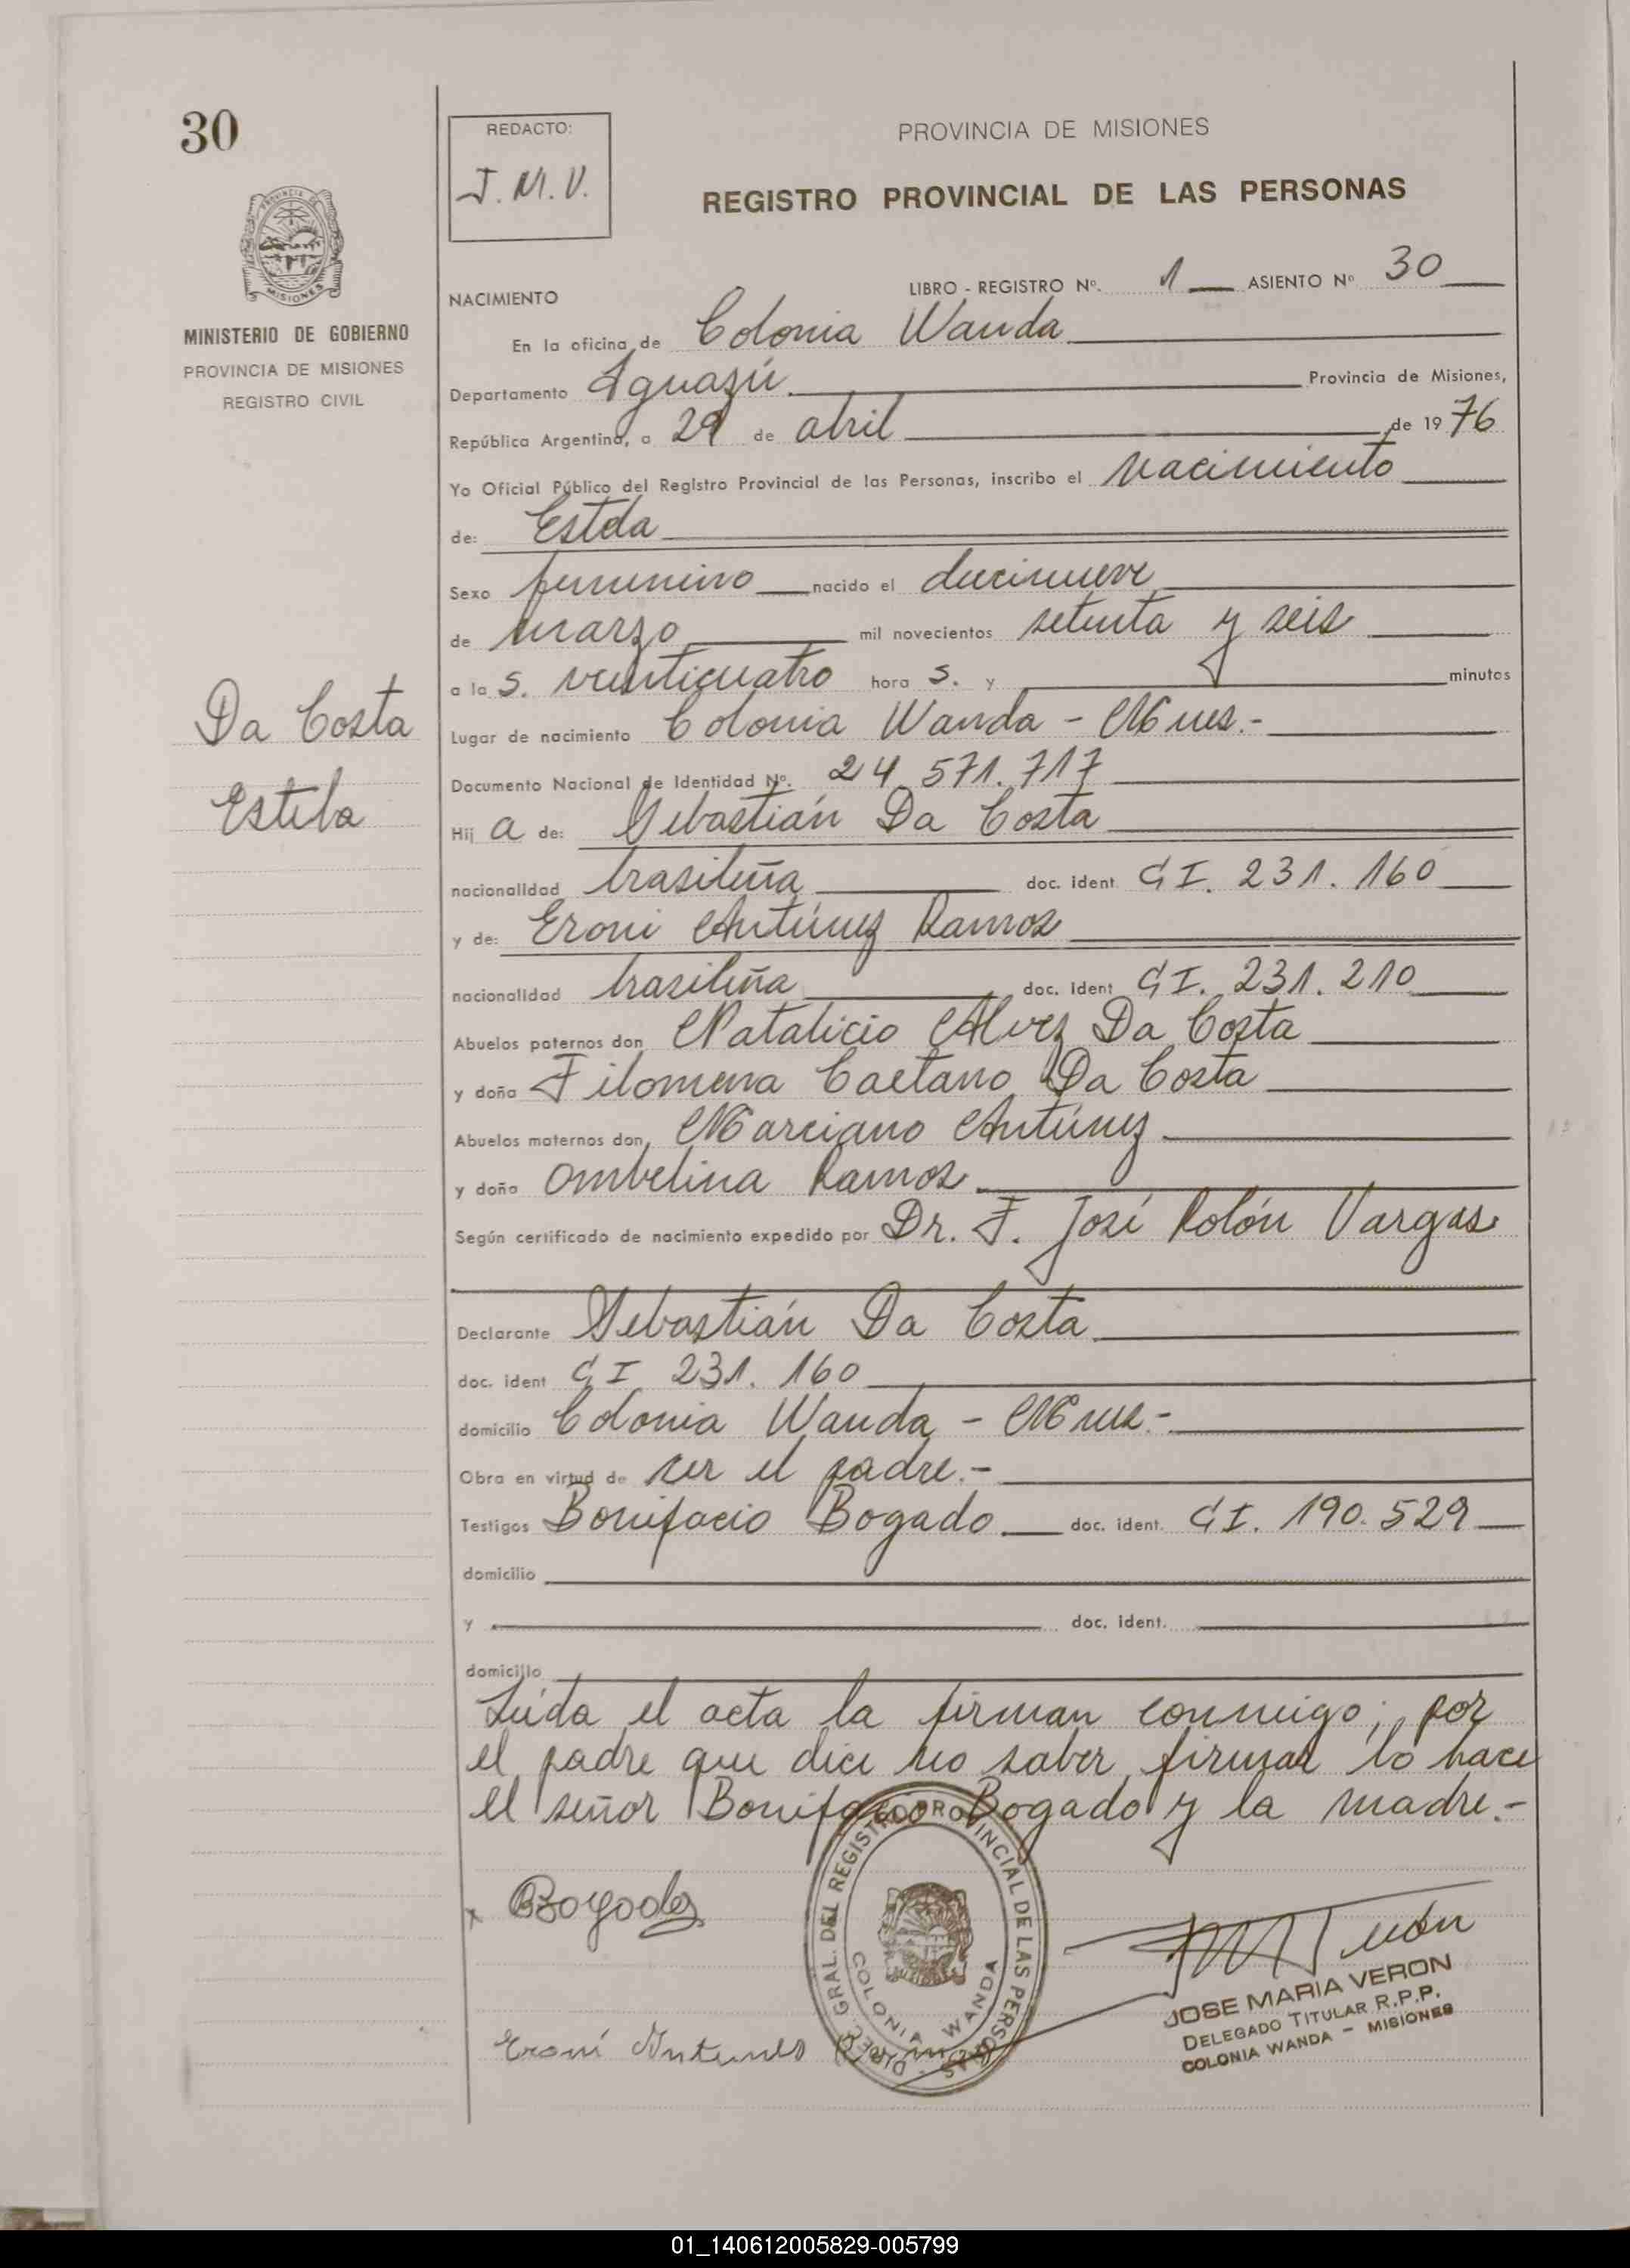 30
MINISTERIO DE GOBIERNO
PROVINCIA DE MISIONES
REGISTRO CIVIL
Da Costa
Estela
REDACTO:
J. M. V.
PROVINCIA DE MISIONES
REGISTRO PROVINCIAL DE LAS PERSONAS
NACIMIENTO LIBRO - REGISTRO Nº. 1 ASIENTO Nº 30
En la oficina de Colonia Wanda
Departamento Iguazú Provincia de Misiones,
República Argentina, a 29 de abril de 1976
Yo Oficial Público del Registro Provincial de las Personas, inscribo el Nacimiento
de: Estela
Sexo femenino nacido el diecinueve
de marzo mil novecientos setenta y seis
a las. veinticuatro hora s. y minutos
Lugar de nacimiento Colonia Wanda - Mnes.-
Documento Nacional de Identidad Nº. 24.571.717
Hija de: Sebastián Da Costa
nacionalidad brasileña doc. ident CI. 231.160
y de: Eroni Antúnez Ramos
nacionalidad brasileña doc. ident CI. 231.210
Abuelos paternos don Natalicio Alvez Da Costa
y doña Filomena Caetano Da Costa
Abuelos maternos don Marciano Antúnez
y doña Ombelina Ramos
Según certificado de nacimiento expedido por Dr. F. José Rolón Vargas
Declarante Sebastián Da Costa
doc. ident CI 231.160
domicilio Colonia Wanda - Mnes.-
Obra en virtud de ser el padre.-
Testigos Bonifacio Bogado doc. ident. CI. 190.529
domicilio
y doc. ident.
domicilio
Leída el acta la firman conmigo; por
el padre que dice no saber firmar lo hace
el señor Bonifacio Bogado y la madre.-
x Bogado
DIREC. GRAL. DEL REGISTRO PROVINCIAL DE LAS PERSONAS
COLONIA WANDA
JOSE MARIA VERON
DELEGADO TITULAR R.P.P.
COLONIA WANDA - MISIONES
Eroni Antunes
01_140612005829-005799